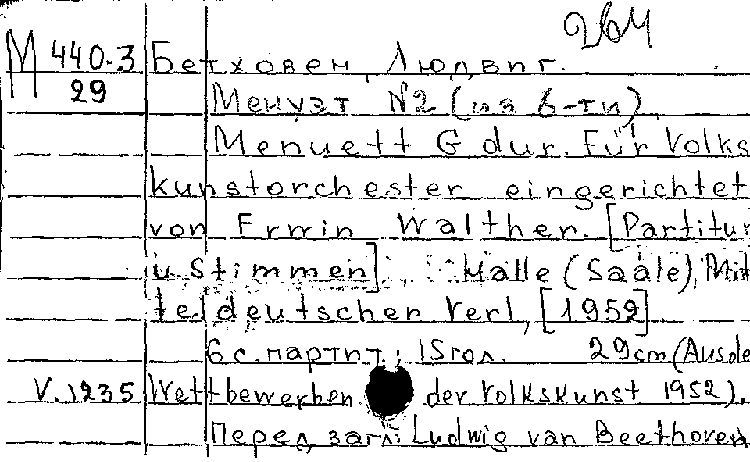 264
М 440-3 Бетховен, Людвиг.
29 Менуэт №2 (из 6-ти)
Menuett G dur. Für Volks
kunstorchester eingerichtet
von Erwin Walther. [Partitur
u Stimmen] Halle (Saale), Mit
teldeutscher Verl, [1952]
6 с. партит.; 15 гол. 29cm (Ausde
V.1235 Wettbewerben der Volkskunst 1952).
Перед загл: Ludwig van Beethoven